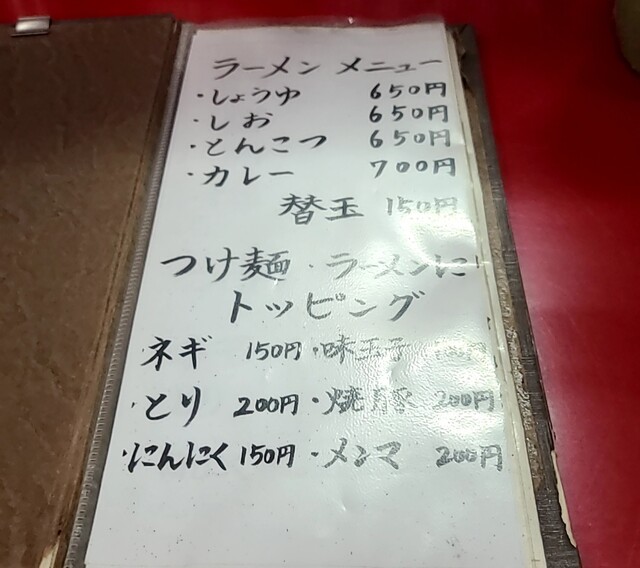 ラーメン メニュー
・しょうゆ 650円
・しお 650円
・とんこつ 650円
・カレー 700円
替玉 150円
つけ麺・ラーメンに
トッピング
ネギ 150円・味玉子
・とり 200円・焼豚 200円
・にんにく 150円・メンマ 200円